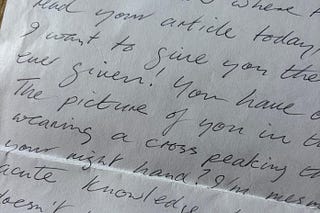 where
read your article today,
I want to give you the
ever given! You have
The picture of you in th
wearing a cross peaking th
your right hand? I'm mesm
acute knowledge
doesn't